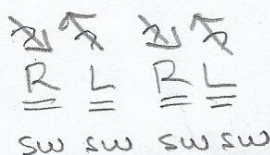 R L R L
sw sw sw sw